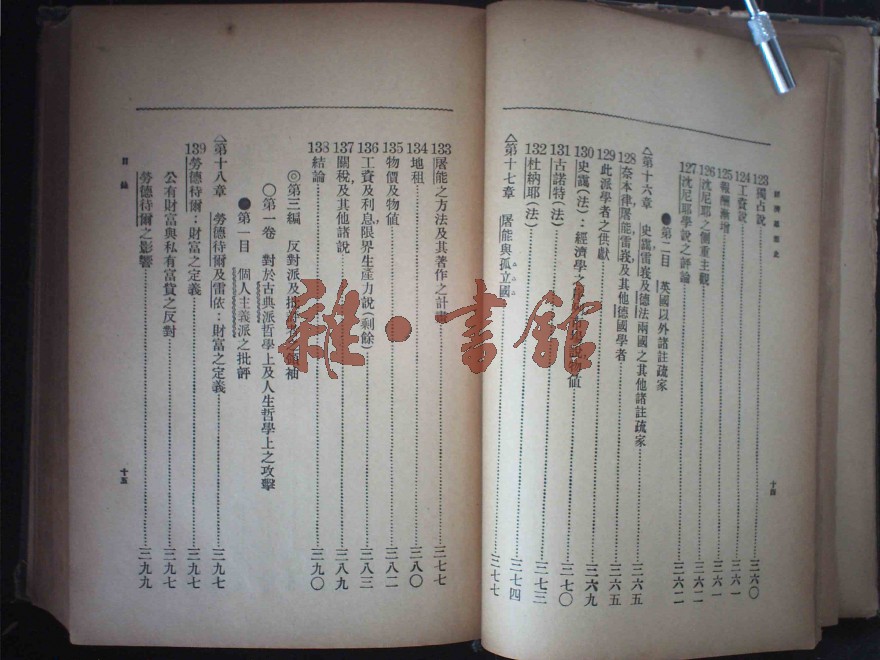 經濟思想史
123 獨占說 三六〇
124 工資說 三六一
125 報酬漸增 三六一
126 沈尼耶之側重主觀 三六二
127 沈尼耶學說之評論 三六二
●第二目 英國以外諸註疏家
△第十六章 史靄雷峩及德法兩國之其他諸註疏家 三六五
128 奈本律,屠能,雷峩,及其他德國學者 三六五
129 此派學者之供獻 三六九
130 史靄(法):經濟學之 值 三七〇
131 古諾特(法) 三七〇
132 杜納耶(法) 三七三
△第十七章 屠能與孤立國 三七四
三七七
十四
133 屠能之方法及其著作之計畫
134 地租 三八〇
135 物價及物值 三八二
136 工資及利息,限界生產力說(剩餘) 三八三
137 關稅,及其他諸說 三八九
138 結論 三九〇
◎第三編 反對派及批 領袖
○第一卷 對於古典派哲學上及人生哲學上之攻擊
●第一目 個人主義派之批評
△第十八章 勞德待爾及雷依:財富之定義 三九七
139 勞德待爾:財富之定義 三九七
公有財富與私有富貲之反對 三九七
勞德待爾之影響 三九九
目錄
十五
雜·書館